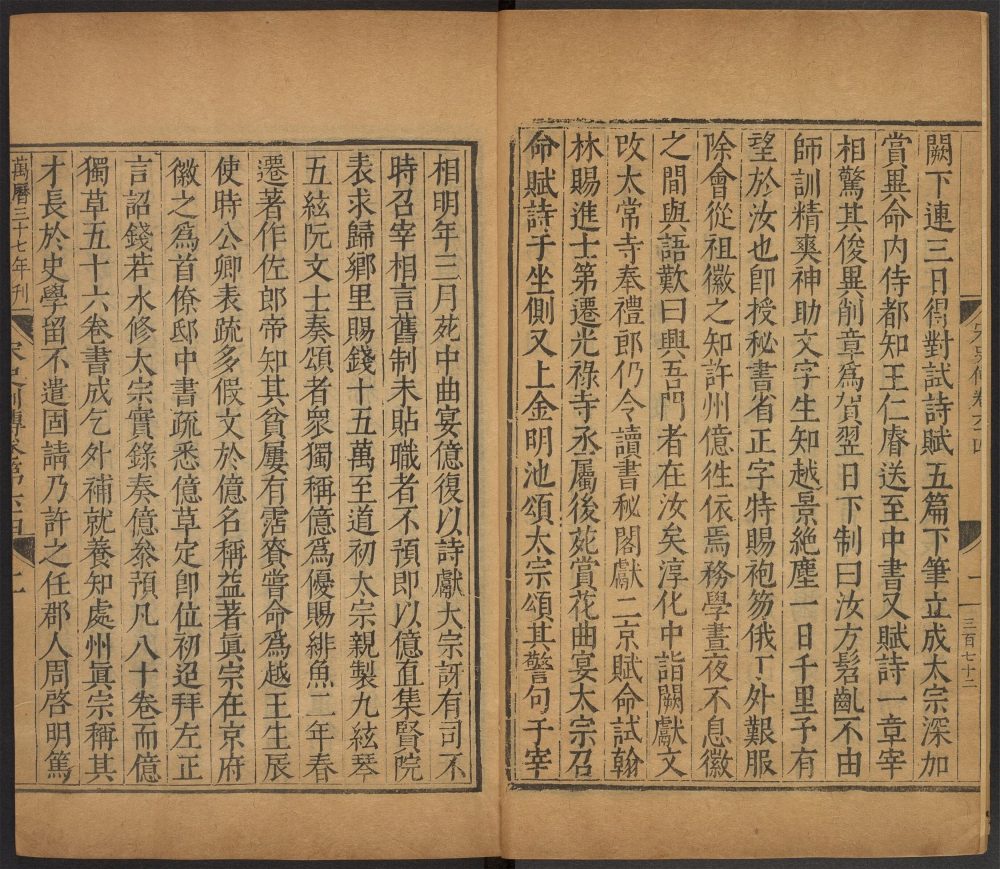 闕下連三日得對試詩賦五篇下筆立成太宗深加
賞異命内侍都知王仁睿送至中書又賦詩一章宰
相驚其俊異削章爲賀翌日下制曰汝方髫齓不由
師訓精爽神助文字生知越景絶塵一日千里予有
望於汝也卽授秘書省正字特賜袍笏俄丁外艱服
除會從祖徽之知許州億徃依焉務學晝夜不息徽
之間與語歎曰興吾門者在汝矣淳化中詣闕獻文
攺太常寺奉禮郎仍令讀書秘閣獻二京賦命試翰
林賜進士第遷光祿寺丞屬後苑賞花曲宴太宗召
命賦詩于坐側又上金明池頌太宗頌其警句于宰
三百七十二
相明年三月苑中曲宴億復以詩獻大宗訝有司不
時召宰相言舊制未貼職者不預即以億直集賢院
表求歸鄉里賜錢十五萬至道初太宗親製九絃琴
五絃阮文士奏頌者衆獨稱億爲優賜緋魚二年春
遷著作佐郎帝知其貧屢有霑賚嘗命爲越王生辰
使時公卿表疏多假文於億名稱益著眞宗在京府
徽之爲首僚邸中書疏悉億草定卽位初迢拜左正
言詔錢若水修太宗實錄奏億叅預凡八十卷而億
獨草五十六卷書成乞外補就養知處州眞宗稱其
才長於史學留不遣固請乃許之任郡人周啓明篤
萬曆三十七年刊
宋史列傳卷第六四
二